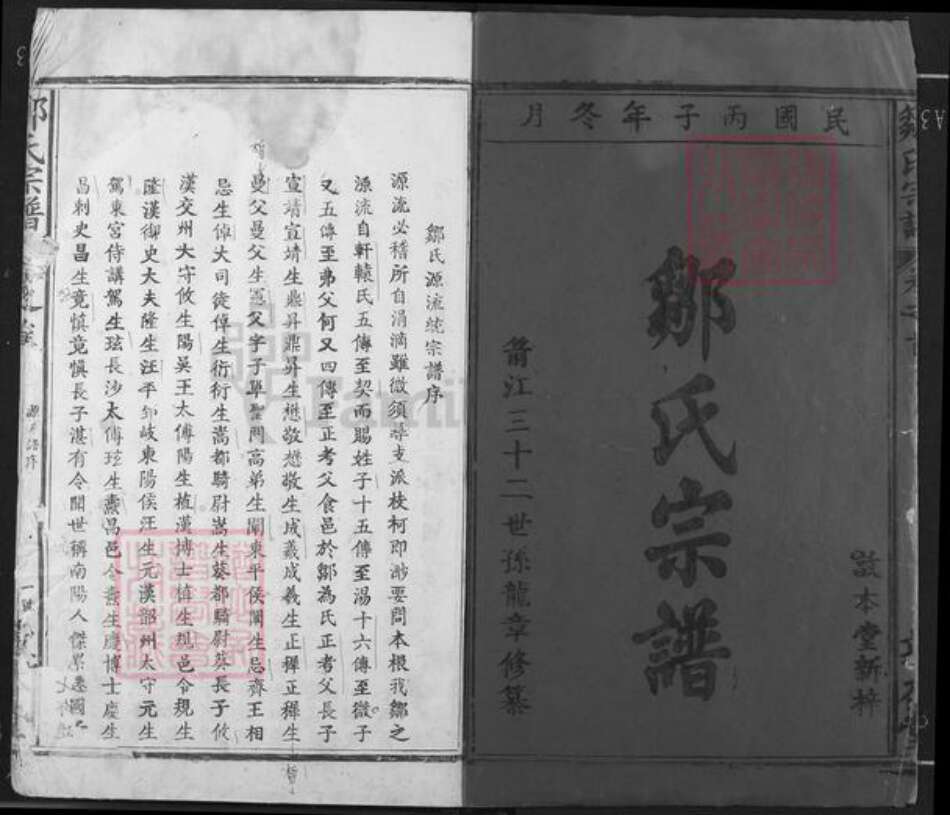 民國丙子年冬月
敦本堂新梓
鄒氏宗譜
箭江三十二世孫龍章修纂
鄒氏源流統宗譜序
源流必稽所自涓滴雖微須尋支派枝柯即渺要問本根我鄒之
源流自軒轅氏五傳至契而賜姓子十五傳至湯十六傳至微子
又五傳至弗父何又四傳至正考父食邑於鄒為氏正考父長子
宣靖宣靖生鼎昇鼎昇生懋敬懋敬生成義成義生正穉正穉生
曼父曼父生憲父字子單聖門高弟生闡東平侯闡生忌齊王相
忌生倬大司徒倬生衍衍生嵩都騎尉嵩生葵都騎尉葵長子攸
漢交州大守攸生陽吳王太傅陽生植漢博士植生規邑令規生
隆漢御史大夫隆生汪平郊岐東陽侯汪生元漢韶州大守元生
駕東宮侍講駕生玹長沙太傅玹生燾昌邑令燾生慶博士慶生
昌刺史昌生竟慎竟慎長子湛有令聞世稱南陽人傑累惠國
鄒氏宗譜